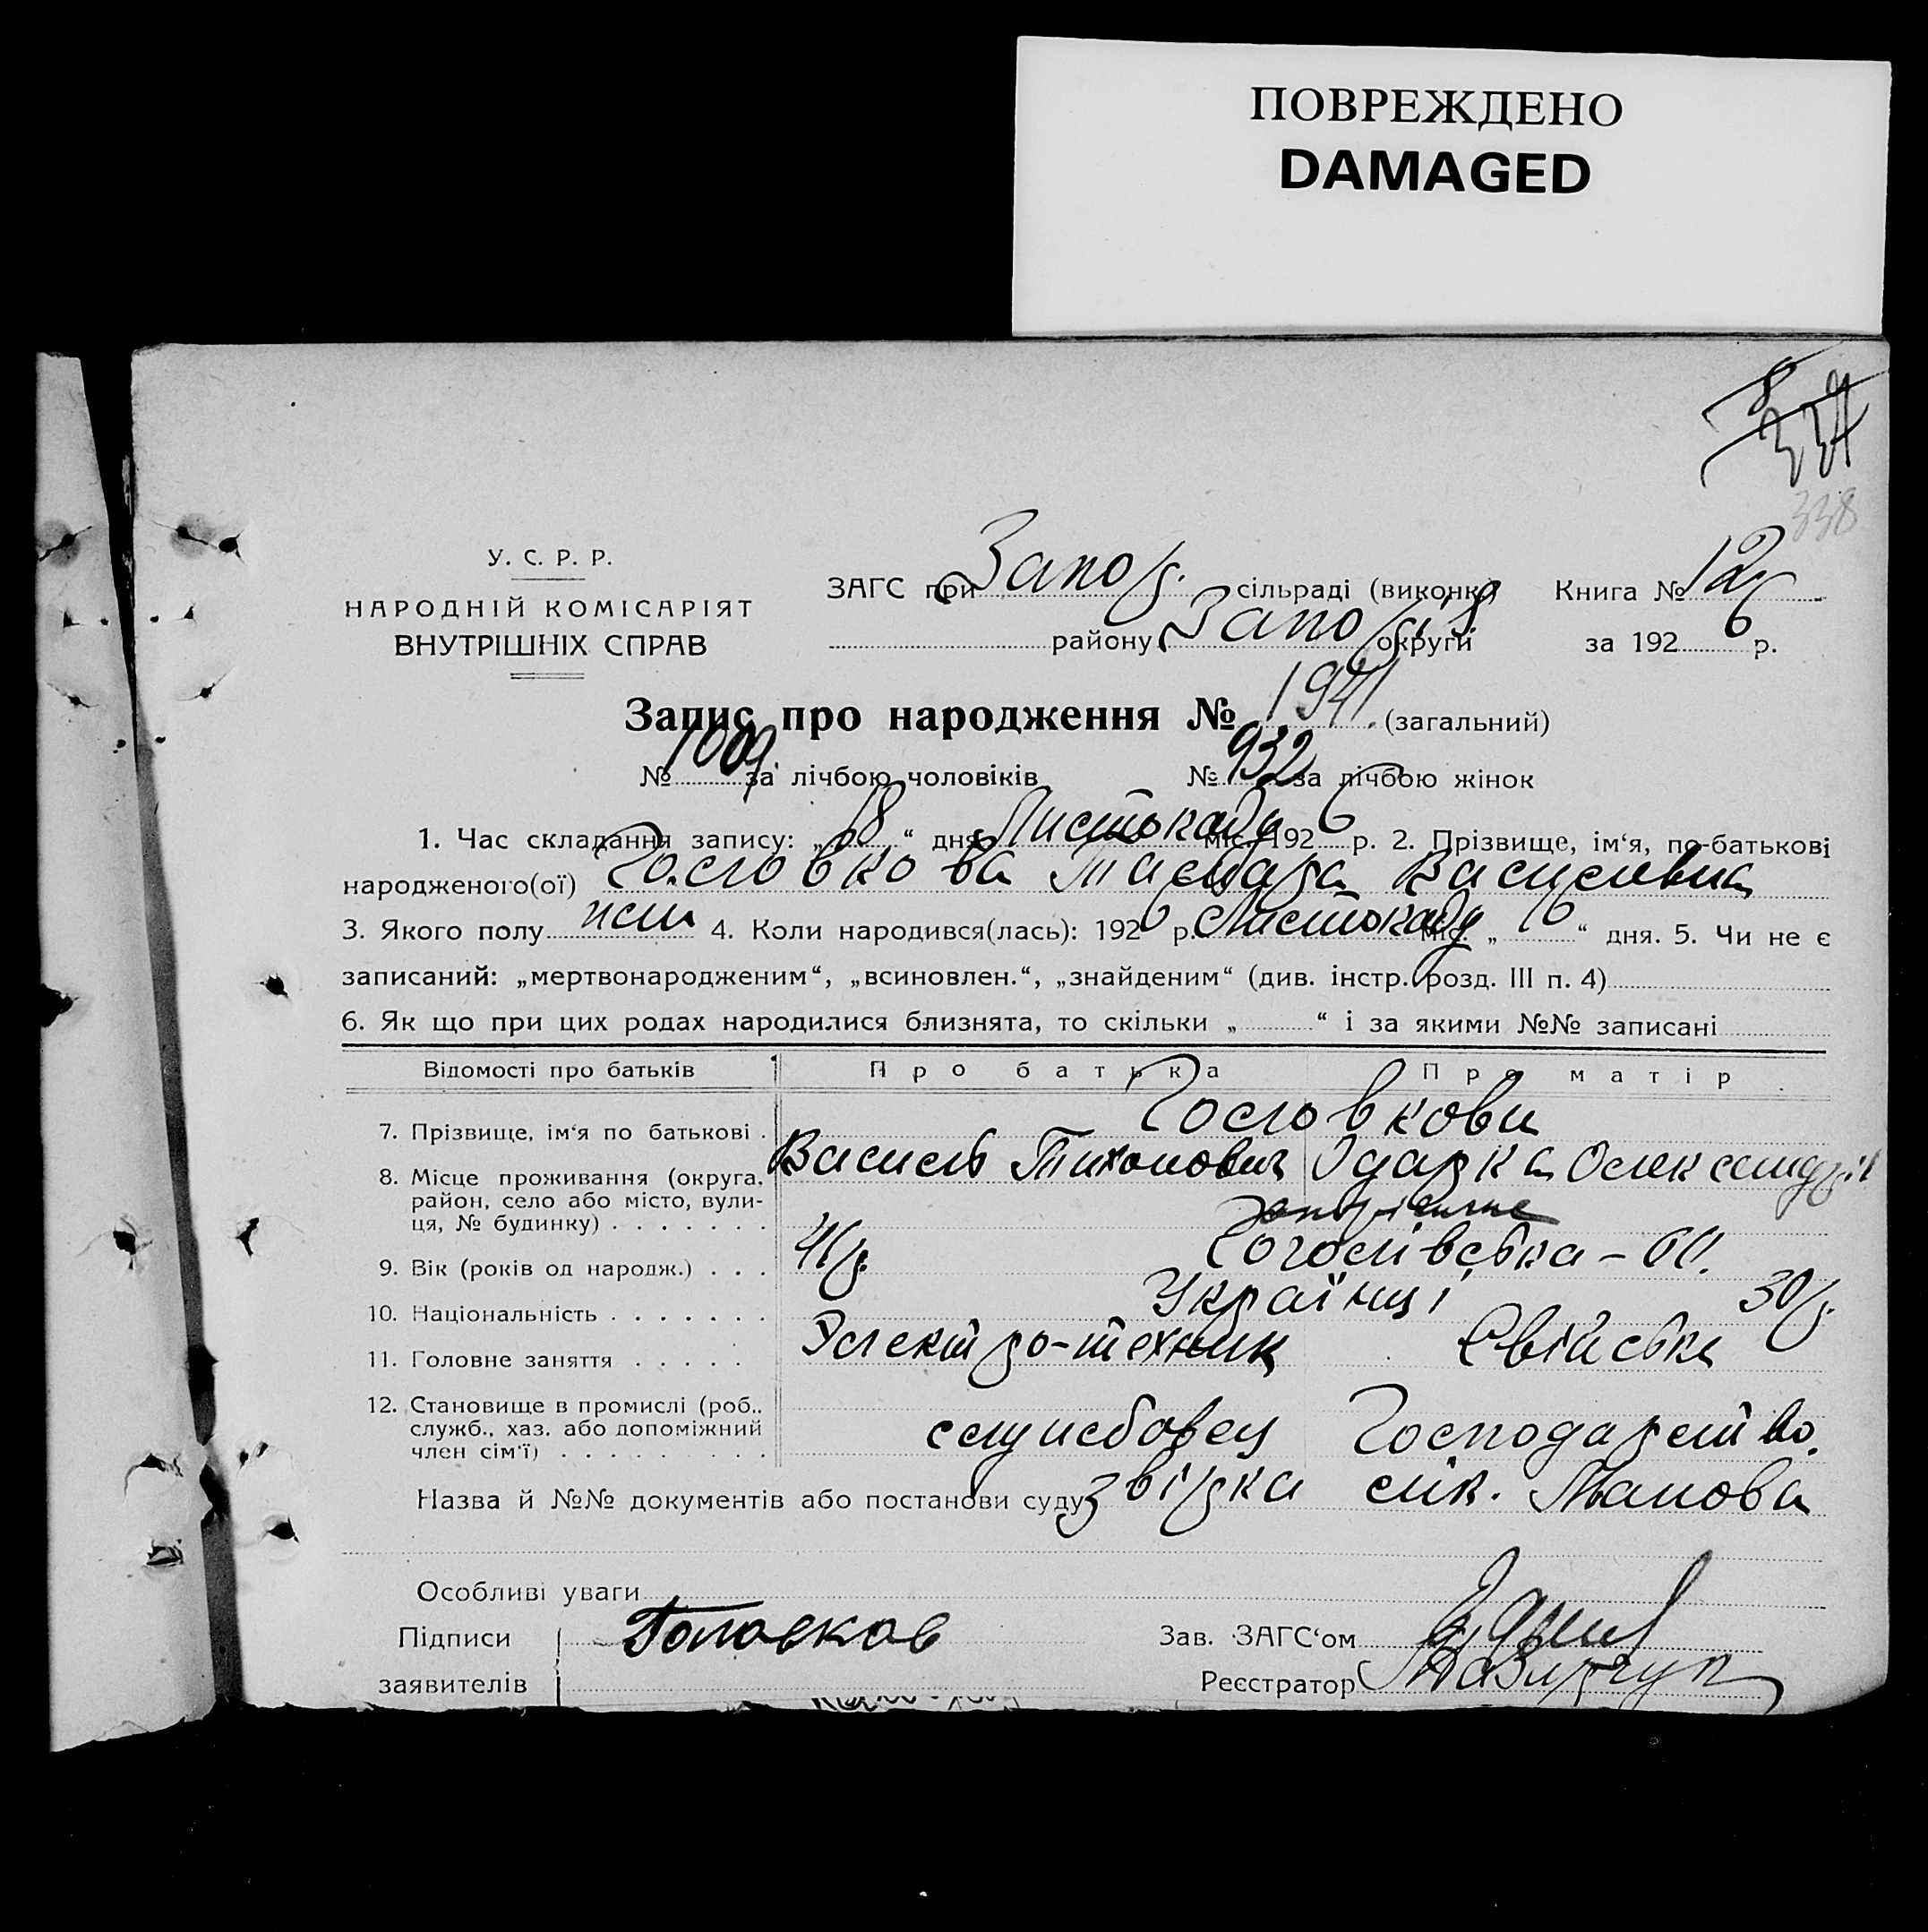 ПОВРЕЖДЕНО
DAMAGED
338
У. С. Р. Р.
НАРОДНІЙ КОМІСАРІЯТ
ВНУТРІШНІХ СПРАВ
ЗАГС при Запор. сільраді (виконк.) Книга № 12
району Запор округи за 1926 р.
Запис про народження № 1941 (загальний)
№ 1009 за лічбою чоловіків № 932 за лічбою жінок
1. Час складання запису: „18“ дня Листопаду міс. 1926 р. 2. Прізвище, ім‘я, по-батькові
народженого(ої) Головкова Тамара Василівна
3. Якого полу жін 4. Коли народився(лась): 1926 р. Листопаду міс. „16“ дня. 5. Чи не є
записаний: „мертвонародженим“, „всиновлен.“, „знайденим“ (див. інстр. розд. III п. 4)
6. Як що при цих родах народилися близнята, то скільки „ “ і за якими №№ записані
Відомості про батьків Про батька Про матір
7. Прізвище, ім‘я по батькові . Головкови
Василь Тихонович Одарка Олександрів
8. Місце проживання (округа,
район, село або місто, вули-
ця, № будинку) . . . . . . .
Гоголівська – 60.
9. Вік (років од народж.) . . . 41р. 30р.
10. Національність . . . . . . . Українці
11. Головне заняття . . . . . Електро-технік Свійське
12. Становище в промислі (роб.,
служб., хаз. або допоміжний
член сім‘ї) . . . . . . . . .
службовец Господарство.
Назва й №№ документів або постанови суду звірка лік. Панова
Особливі уваги
Підписи Головков Зав. ЗАГС‘ом
заявителів Реєстратор